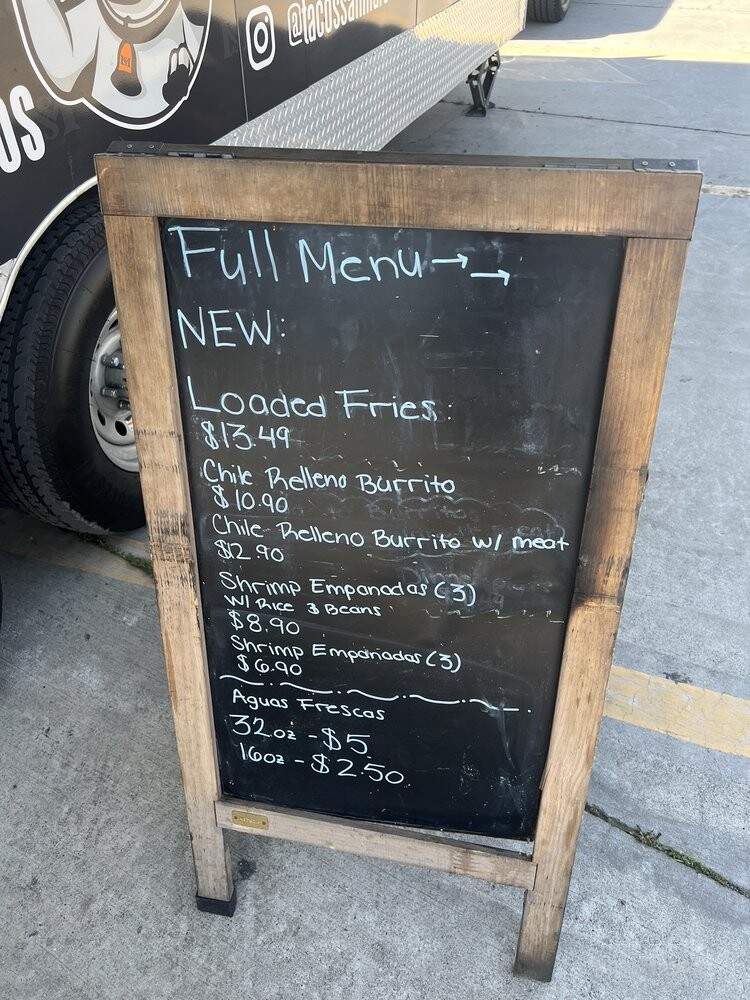 OS
Full Menu→→
NEW:
Loaded Fries:
$13.49
Chile Relleno Burrito
$10.90
Chile Relleno Burrito w/ meat
$12.90
Shrimp Empanadas (3)
W/ Rice & Beans
$8.90
Shrimp Empanadas (3)
$6.90
Aguas Frescas
32oz - $5
16oz - $2.50